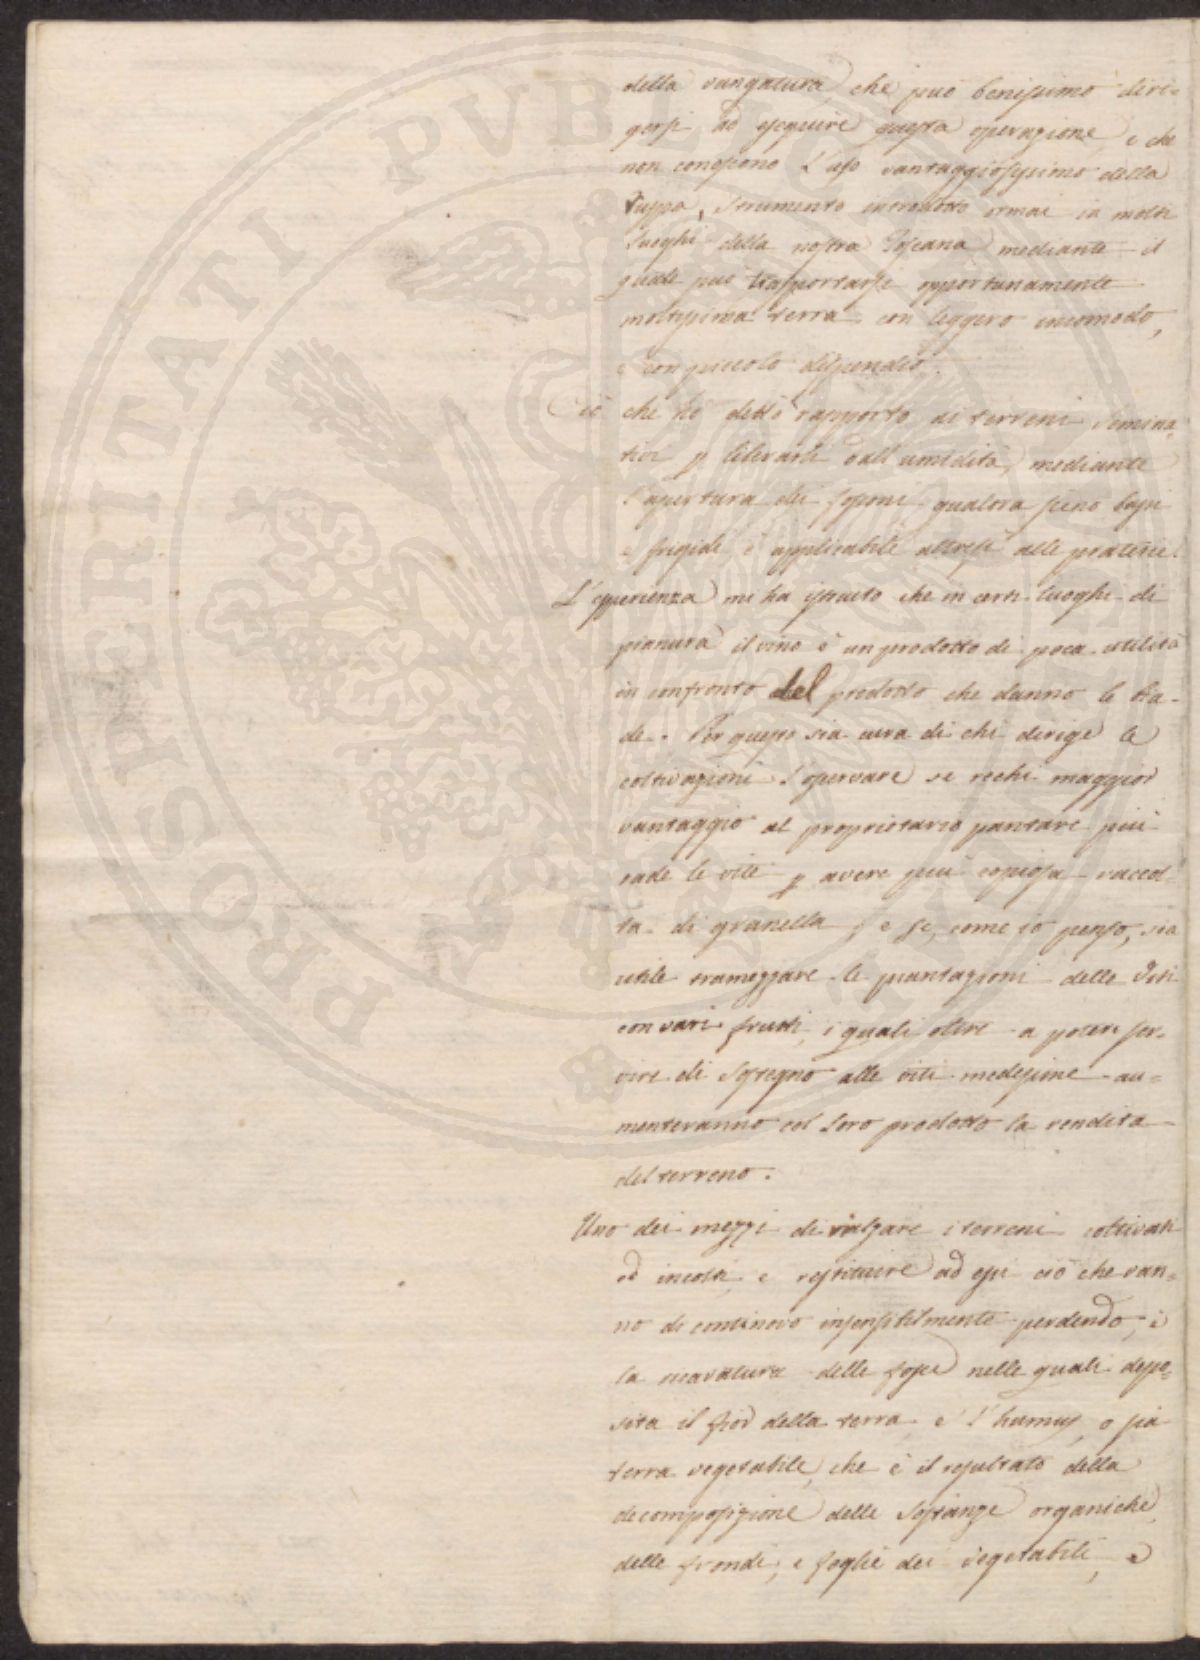 della vangatura, che può benissimo diri=
gersi ad eseguire questa operazione, e che
non conoscono l'uso vantaggiosissimo della
Ruspa, strumento introdotto ormai in molti
luoghi della nostra Toscana mediante il
quale può trasportarsi opportunamente
moltissima terra con leggero incomodo,
e con piccolo dispendio.
Ciò che ho detto rapporto ai terreni semina=
tivi p liberarli dall'umidità, mediante
l'apertura dei fossoni qualora sieno bassi
e frigidi è applicabile altresì alle praterie.
L'esperienza mi ha istruito che in certi luoghi di
pianura il vino è un prodotto di poca utilità
in confronto del prodotto che danno le bia-
de. Per questo sia cura di chi dirige le
coltivazioni l'osservare se rechi maggior
vantaggio al proprietario pantare più
rade le viti p avere più copiosa raccol=
ta di granella; e se, come io penso, sia
utile tramezzare le piantazioni delle Viti
con vari frutti, i quali oltre a poter ser-
vire di sostegno alle viti medesime au=
menteranno col loro prodotto la rendita
del terreno.
Uno dei mezzi di rialzare i terreni coltivati
ed incolti, e restituire ad essi ciò che van=
no di continovo insensibilmente perdendo, è
la ricavatura delle fosse nelle quali depo=
sita il fior della terra, e l'humus, o sia
terra vegetabile, che è il resultato della
decomposizione delle sostanze organiche,
delle frondi, e foglie dei vegetabili, e
PROSPERITATI PVBLICAE